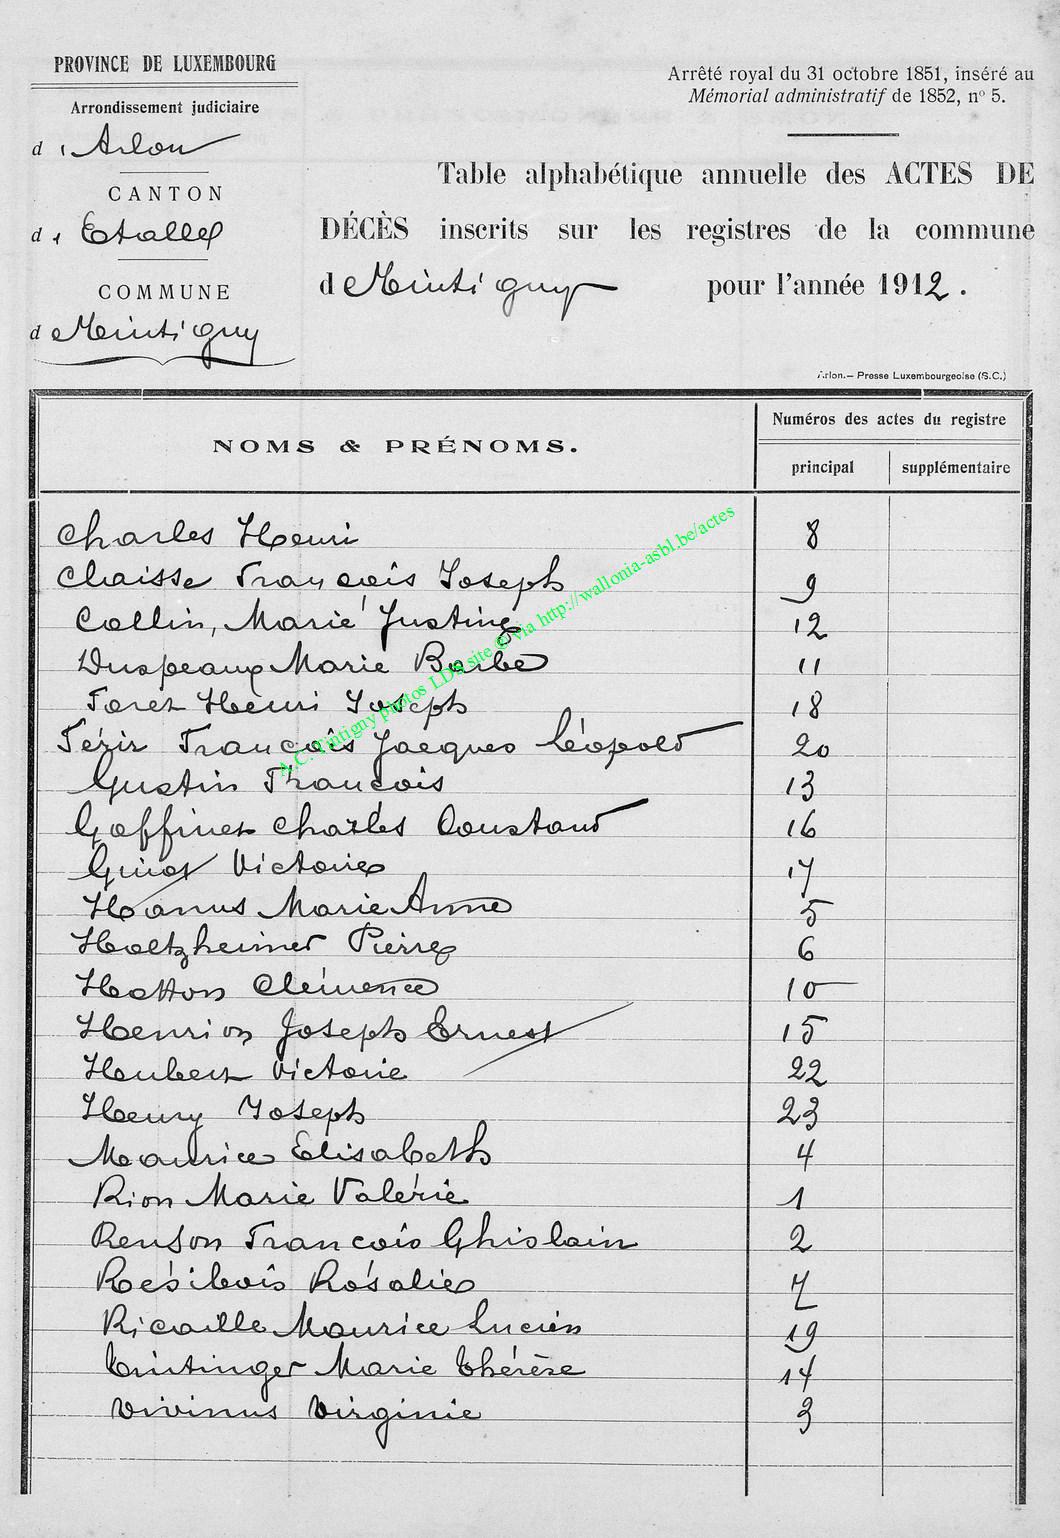 PROVINCE DE LUXEMBOURG
Arrondissement judiciaire
d'Arlon
CANTON
d'Etalle
COMMUNE
de Meix-le-Tige
Arrêté royal du 31 octobre 1851, inséré au
Mémorial administratif de 1852, n° 5.
Table alphabétique annuelle des ACTES DE
DÉCÈS inscrits sur les registres de la commune
d pour l'année 1912.
Arlon.— Presse Luxembourgeoise (S.C.)
NOMS & PRÉNOMS.
Numéros des actes du registre
principal supplémentaire
Charles Henri 8
Claisse François Joseph 9
Collin, Marie Justine 12
Duspeaux Marie Barbe 11
Foret Henri Joseph 18
Férir François Jacques Léopold 20
Gustin François 13
Goffinet Charles Constant 16
Guiot Victoire 17
Hanus Marie Anne 5
Holtzheimer Pierre 6
Hotton Clémence 10
Henrion Joseph Ernest 15
Hubert Victorie 22
Henry Joseph 23
Maurice Elisabeth 4
Rion Marie Valérie 1
Renson François Ghislain 2
Résibois Rosalie 7
Ricaille Maurice Lucien 19
Tintinger Marie Thérèse 14
Vivinus Virginie 3
A.C. Tintigny photos LDS site © via http://wallonia-asbl.be/actes